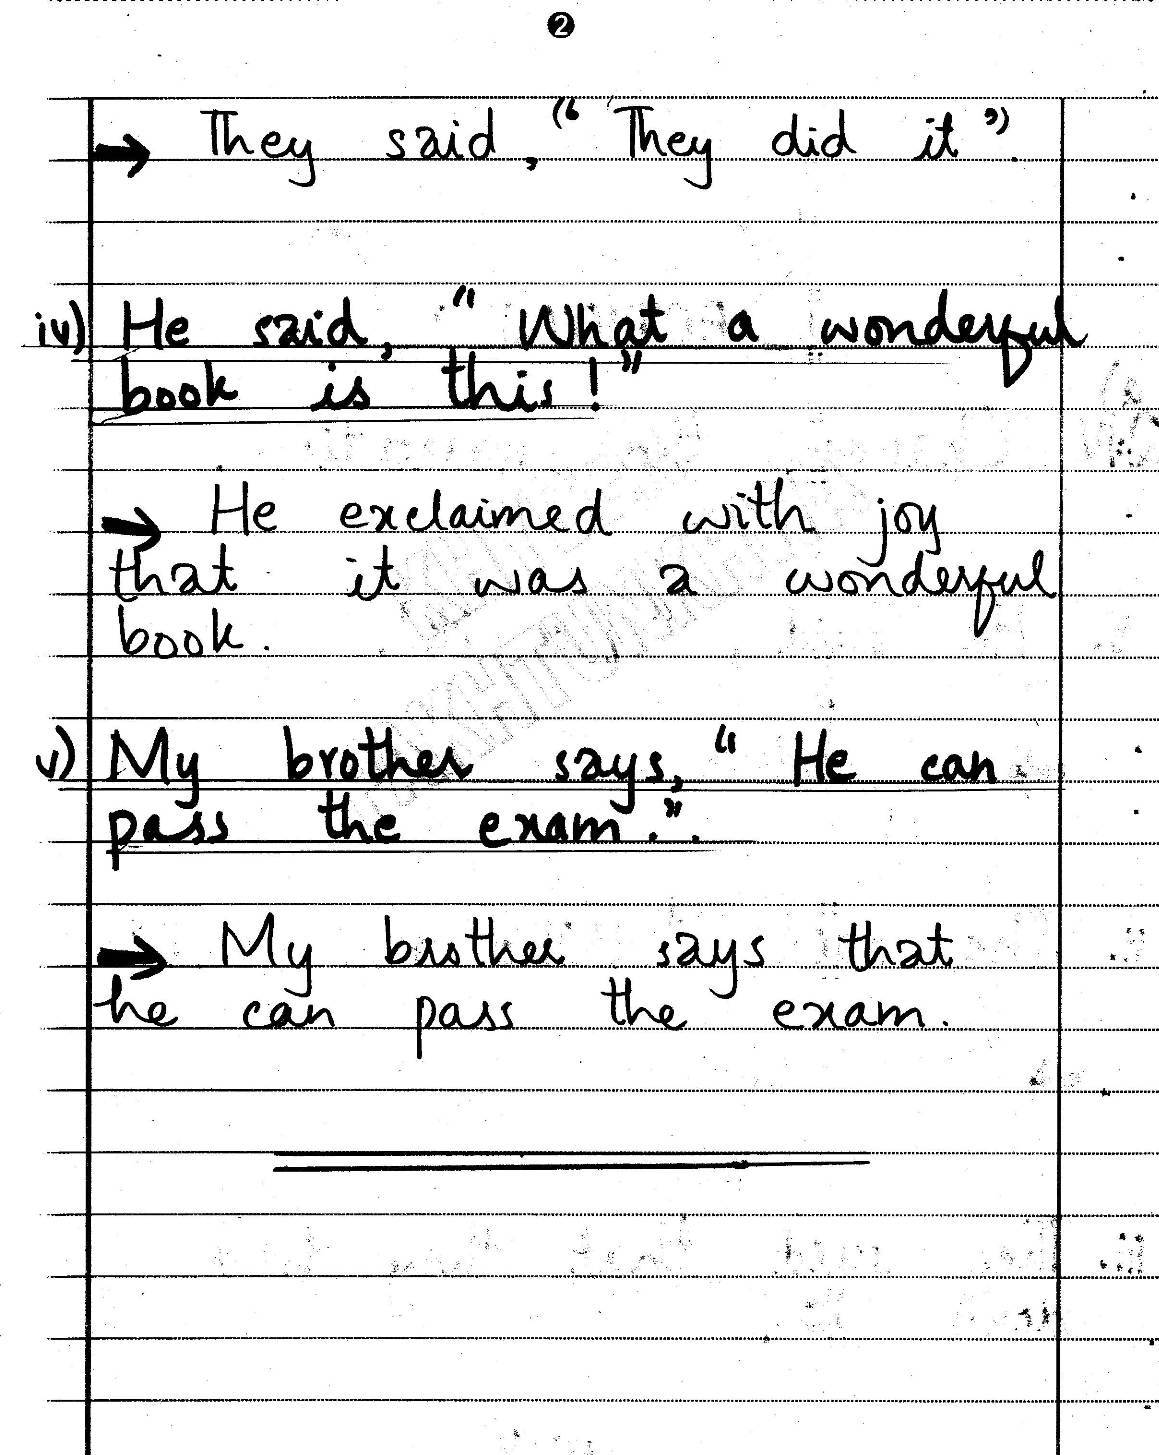 2
→ They said, “They did it”.
iv) He said, “What a wonderful
book is this!”
→ He exclaimed with joy
that it was a wonderful
book.
v) My brother says, “He can
pass the exam.”.
→ My brother says that
he can pass the exam.